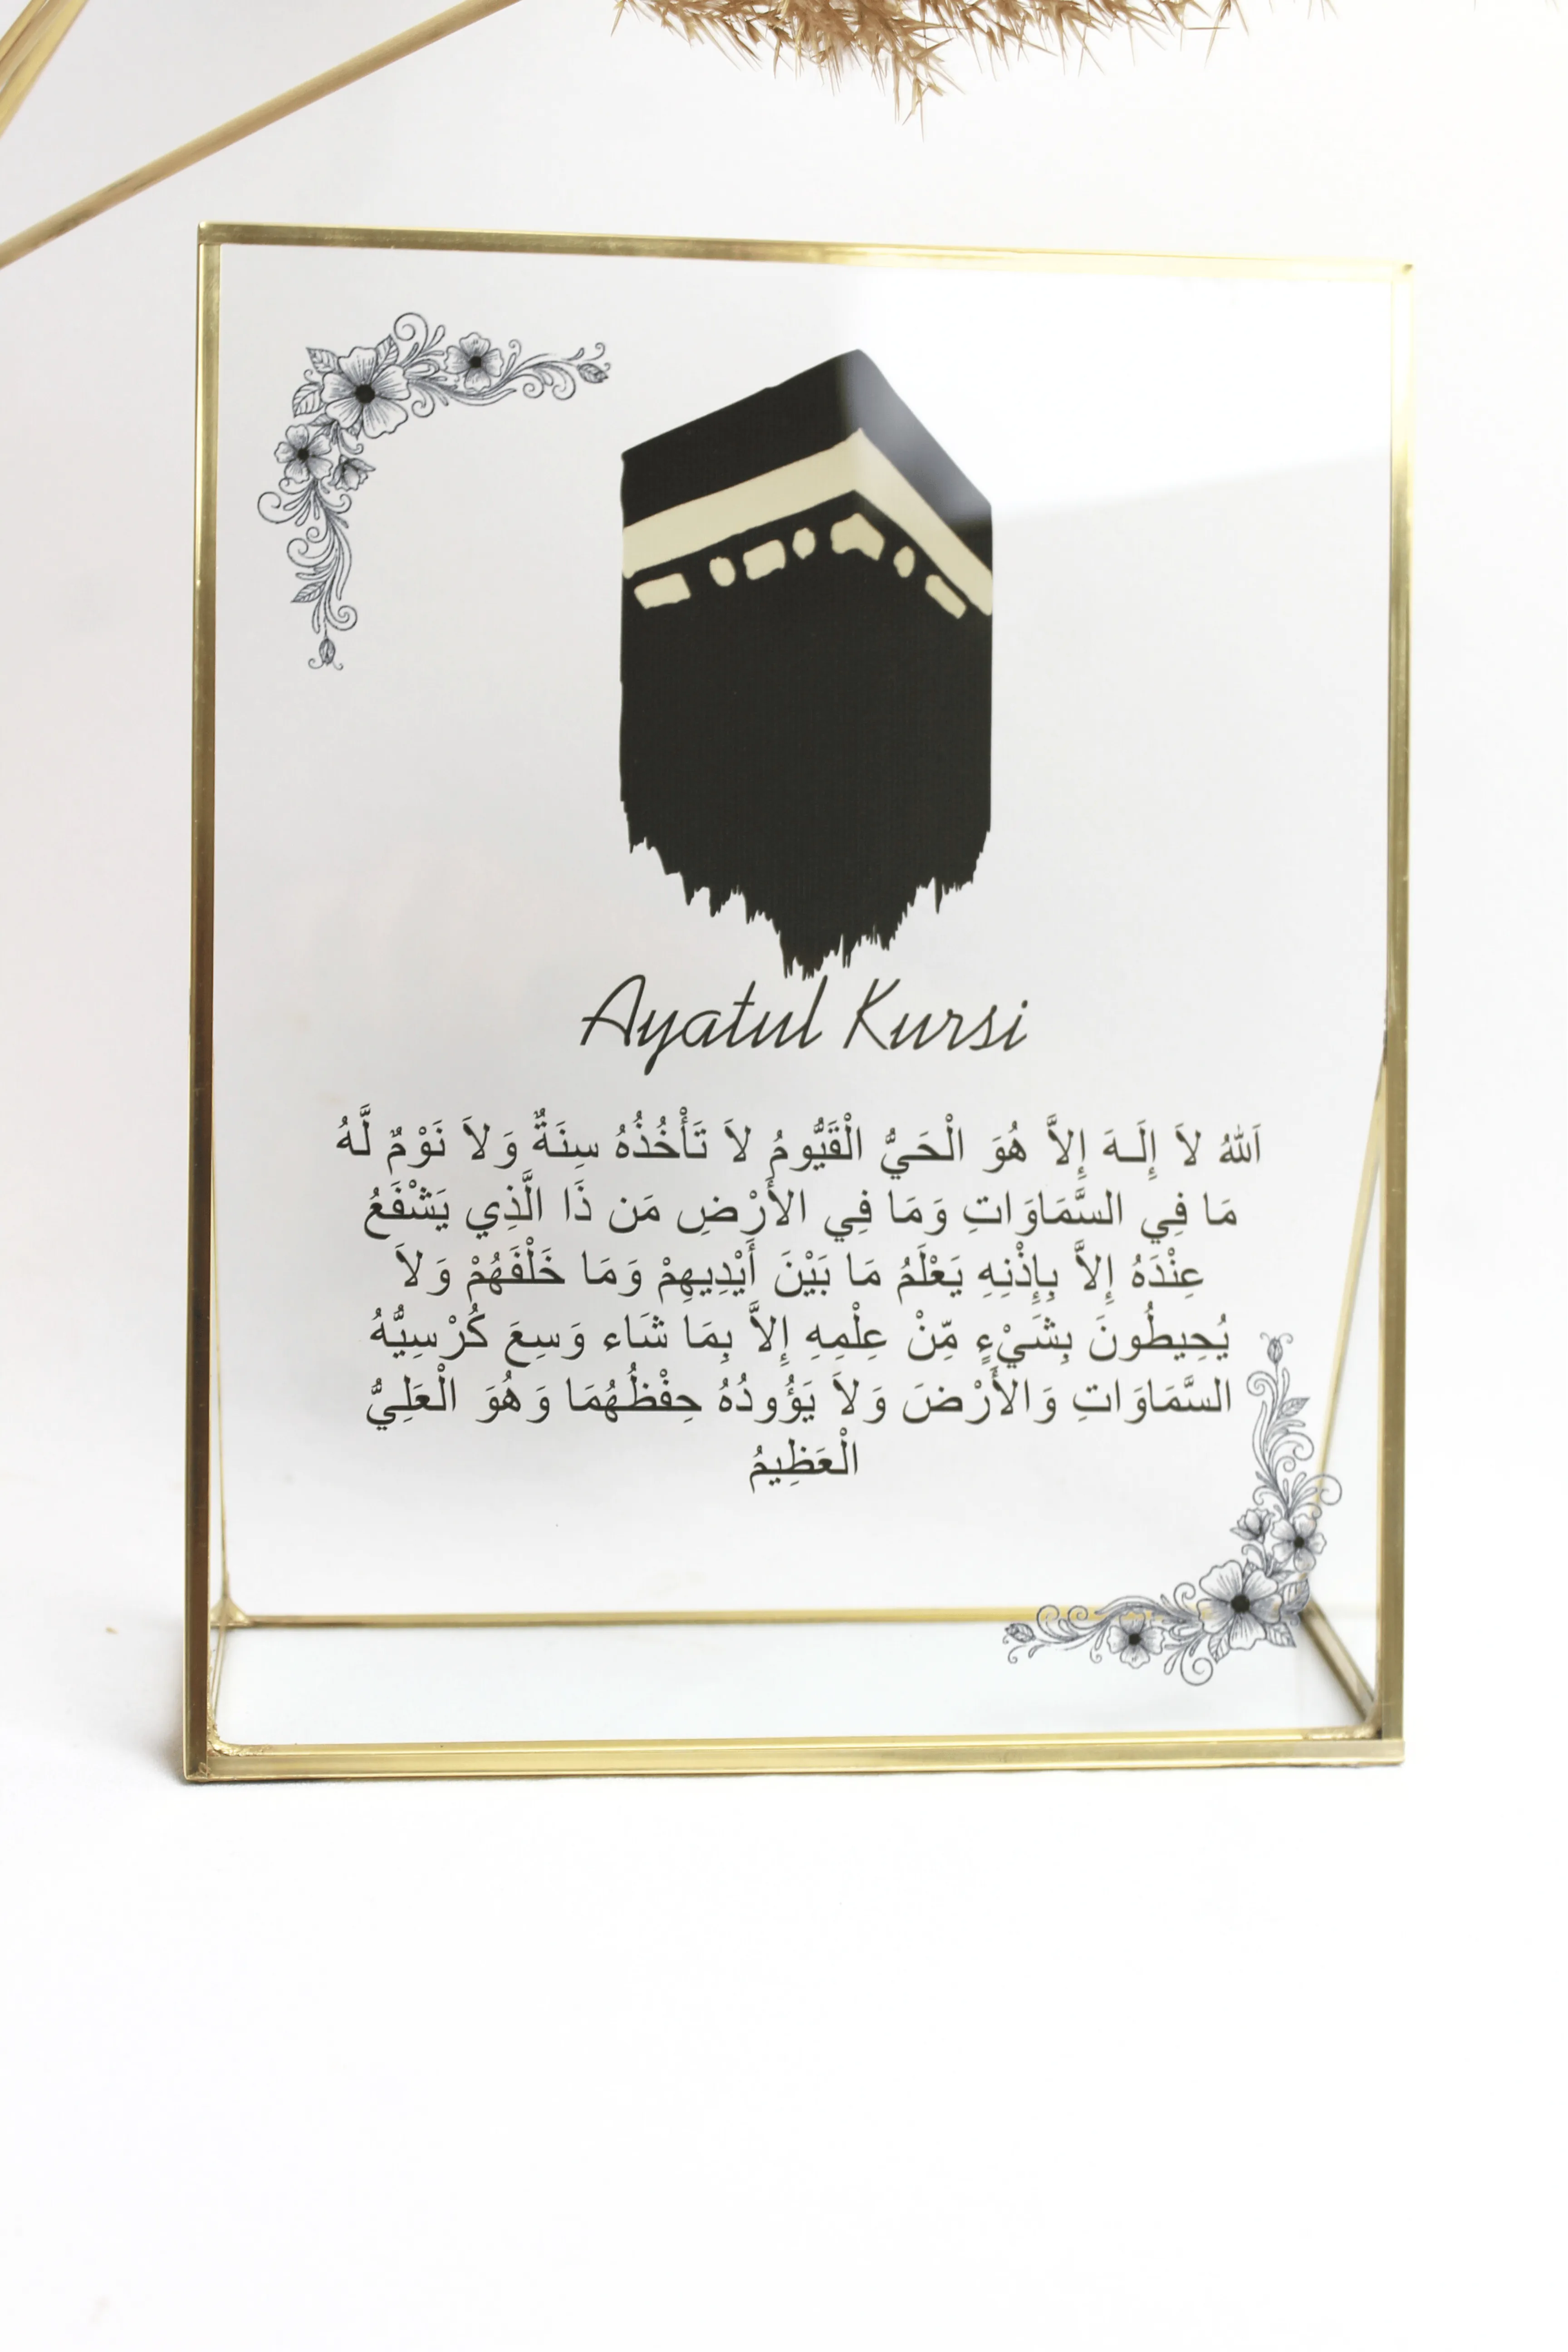 Ayatul Kursi
اَللهُ لاَ إِلَـهَ إِلاَّ هُوَ الْحَيُّ الْقَيُّومُ لاَ تَأْخُذُهُ سِنَةٌ وَلاَ نَوْمٌ لَّهُ
مَا فِي السَّمَاوَاتِ وَمَا فِي الأَرْضِ مَن ذَا الَّذِي يَشْفَعُ
عِنْدَهُ إِلاَّ بِإِذْنِهِ يَعْلَمُ مَا بَيْنَ أَيْدِيهِمْ وَمَا خَلْفَهُمْ وَلاَ
يُحِيطُونَ بِشَيْءٍ مِّنْ عِلْمِهِ إِلاَّ بِمَا شَاء وَسِعَ كُرْسِيُّهُ
السَّمَاوَاتِ وَالأَرْضَ وَلاَ يَؤُودُهُ حِفْظُهُمَا وَهُوَ الْعَلِيُّ
الْعَظِيمُ